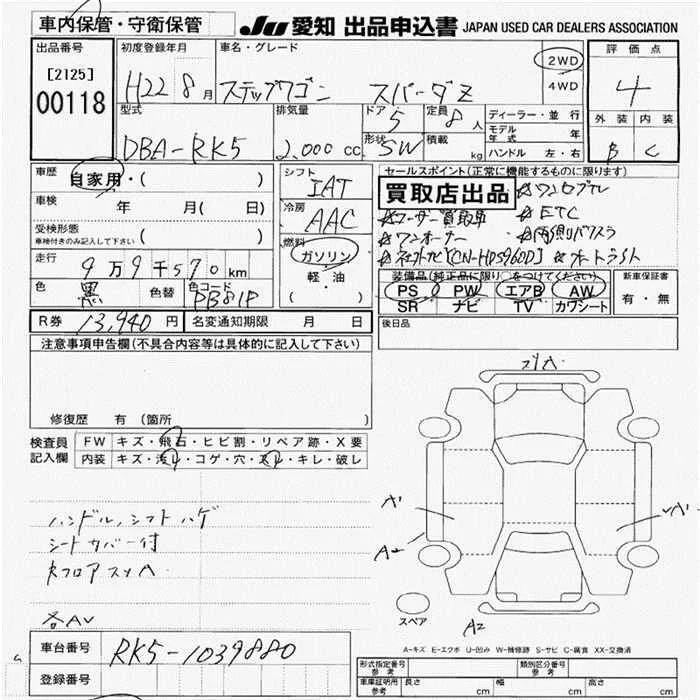 車内保管・守衛保管
JU 愛知 出品申込書 JAPAN USED CAR DEALERS ASSOCIATION
出品番号 初度登録年月 車名・グレード 2WD 4WD 評価点
[2125]
00118
H22 8月 ステップワゴン スパーダZ 4
型式 排気量 ドア 定員 ディーラー・並行 外装 内装
DBA-RK5 2,000 cc 5 8人 モデル年式 年 B C
形状 積載 ハンドル 左・右
SW kg
車歴 自家用・( ) シフト IAT
セールスポイント(正常に機能するものに限ります)
買取店出品
☆ワンセグTV
車検 年 月( 日) 冷房 AAC
☆ユーザー買取車 ☆ETC
受検形態 ( )
車検付きのみ記入して下さい
☆ワンオーナー
走行 9万9千570km 燃料 ガソリン 軽・油
装備品(純正品に限り○をつけてください) 新車保証書
色 黒 色替 色コード
PS PW エアB AW 有・無
SR ナビ TV カワシート
R券 13,940円 名変通知期限 月 日
後日品
注意事項申告欄(不具合内容等は具体的に記入して下さい)
修復歴 有(箇所 )
検査員 FW キズ・飛石・ヒビ割・リペア跡・X要
記入欄 内装 キズ・汚レ・コゲ・穴・スレ・キレ・破レ
ハンドル、シフトハゲ
シートカバー付
A'
A2
各AU
スペア
A2
A-キズ E-エクボ U-凹み W-補修跡 S-サビ C-腐食 XX-交換済
車台番号 RK5-1039880
形式指定番号 参考 類別区分番号 参考
登録番号
車庫証明用 参考 長さ cm 幅 cm 高さ cm